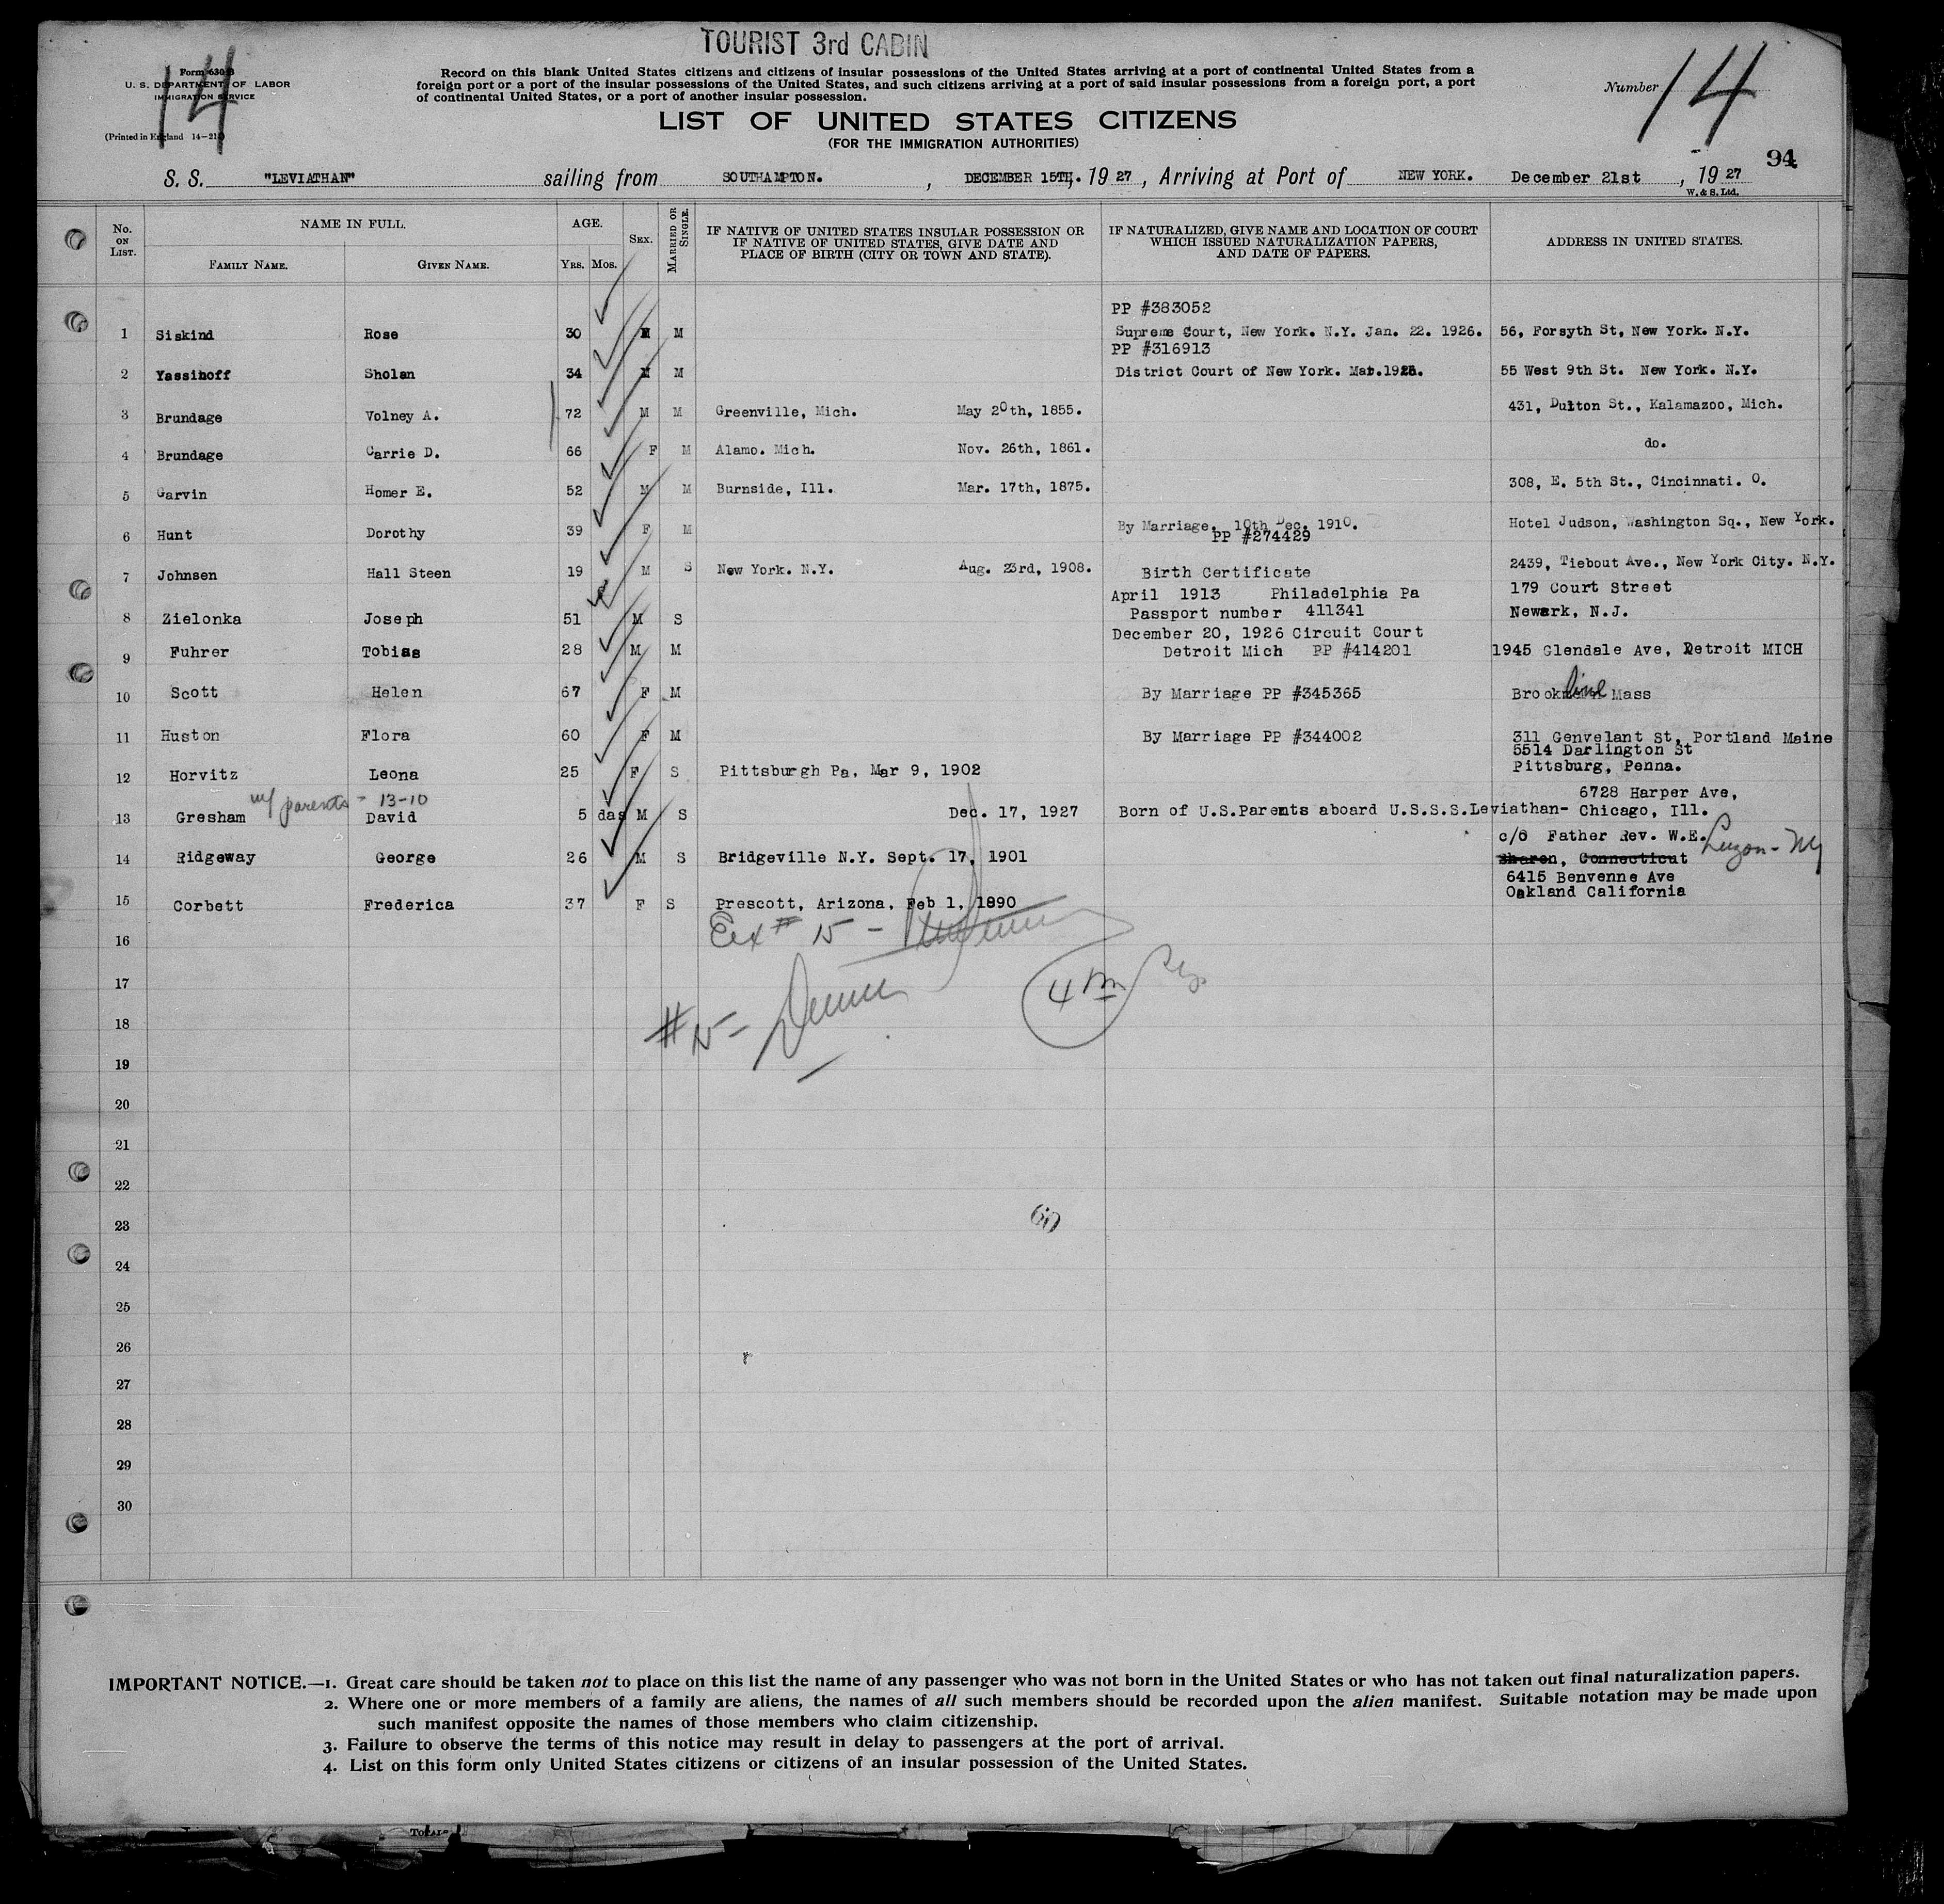 TOURIST 3rd CABIN
14
Form 630 B
U. S. DEPARTMENT OF LABOR
IMMIGRATION SERVICE
(Printed in England 14-218)
Record on this blank United States citizens and citizens of insular possessions of the United States arriving at a port of continental United States from a
foreign port or a port of the insular possessions of the United States, and such citizens arriving at a port of said insular possessions from a foreign port, a port
of continental United States, or a port of another insular possession.
Number 14
LIST OF UNITED STATES CITIZENS
(FOR THE IMMIGRATION AUTHORITIES)
94
S. S. "LEVIATHAN" sailing from SOUTHAMPTON. , DECEMBER 15TH, 19 27 , Arriving at Port of NEW YORK. December 21st , 19 27
W. & S. Ltd.
No. ON LIST. NAME IN FULL. AGE. SEX. MARRIED OR SINGLE. IF NATIVE OF UNITED STATES INSULAR POSSESSION OR IF NATIVE OF UNITED STATES, GIVE DATE AND PLACE OF BIRTH (CITY OR TOWN AND STATE). IF NATURALIZED, GIVE NAME AND LOCATION OF COURT WHICH ISSUED NATURALIZATION PAPERS, AND DATE OF PAPERS. ADDRESS IN UNITED STATES.
FAMILY NAME. GIVEN NAME. YRS. MOS.
PP #383052
1 Siskind Rose 30 M M Supreme Court, New York. N.Y. Jan. 22. 1926. 56, Forsyth St, New York. N.Y.
PP #316913
2 Yassinoff Sholan 34 M M District Court of New York. Mar. 55 West 9th St. New York. N.Y.
3 Brundage Volney A. 72 M M Greenville, Mich. May 20th, 1855. 431, Dulton St., Kalamazoo, Mich.
4 Brundage Carrie D. 66 F M Alamo. Mich. Nov. 26th, 1861. do.
5 Garvin Homer E. 52 M M Burnside, Ill. Mar. 17th, 1875. 308, E. 5th St., Cincinnati. O.
6 Hunt Dorothy 39 F M By Marriage. 10th Dec. 1910. Hotel Judson, Washington Sq., New York.
PP #274429
7 Johnsen Hall Steen 19 M S New York. N.Y. Aug. 23rd, 1908. Birth Certificate 2439, Tiebout Ave., New York City. N.Y.
April 1913 Philadelphia Pa 179 Court Street
8 Zielonka Joseph 51 M S Passport number 411341 Newark, N.J.
December 20, 1926 Circuit Court
9 Fuhrer Tobias 28 M M Detroit Mich PP #414201 1945 Glendale Ave, Detroit MICH
10 Scott Helen 67 F M By Marriage PP #345365 Brookline Mass
11 Huston Flora 60 F M By Marriage PP #344002 311 Genvelant St, Portland Maine
5514 Darlington St
12 Horvitz Leona 25 F S Pittsburgh Pa, Mar 9, 1902 Pittsburg, Penna.
w/ parents - 13-10 6728 Harper Ave,
13 Gresham David 5 das M S Dec. 17, 1927 Born of U.S.Parents aboard U.S.S.S.Leviathan- Chicago, Ill.
c/o Father Rev. W.E.
14 Ridgeway George 26 M S Bridgeville N.Y. Sept. 17, 1901 Sharon, Connecticut Luzon - NY
6415 Benvenne Ave
15 Corbett Frederica 37 F S Prescott, Arizona, Feb 1, 1890 Oakland California
16 Ex # 15 -
17 4th
18 # 15 -
19
20
21
22
23
24
25
26
27
28
29
30
IMPORTANT NOTICE.—1. Great care should be taken not to place on this list the name of any passenger who was not born in the United States or who has not taken out final naturalization papers.
2. Where one or more members of a family are aliens, the names of all such members should be recorded upon the alien manifest. Suitable notation may be made upon
such manifest opposite the names of those members who claim citizenship.
3. Failure to observe the terms of this notice may result in delay to passengers at the port of arrival.
4. List on this form only United States citizens or citizens of an insular possession of the United States.
TOTAL